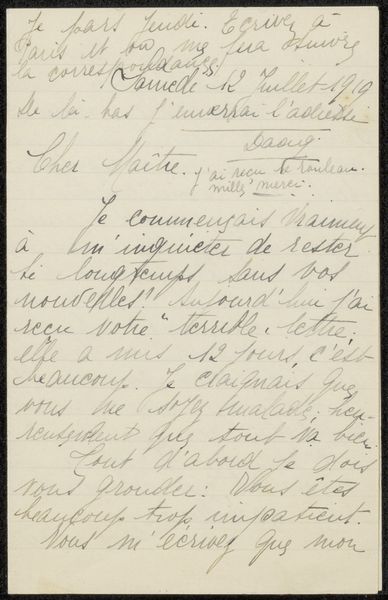 Je pars Jeudi. Ecrivez à
Paris et on me fera suivre
la correspondance
Samedi 12 Juillet 1919
De là-bas j'enverrai l'adresse
Cher Maître.
j'ai reçu le rouleau.
mille merci.
Je commençais vraiment
à m'inquieter de rester
si longtemps sans vos
nouvelles! Aujourd'hui j'ai
reçu votre "terrible" lettre.
elle a mis 12 jours, c'est
beaucoup. Je craignais que
vous ne soyez malade, heu-
reusement que tout va bien
Tout d'abord je dois
vous gronder: Vous êtes
beaucoup trop impatient.
Vous m'écrivez que mon